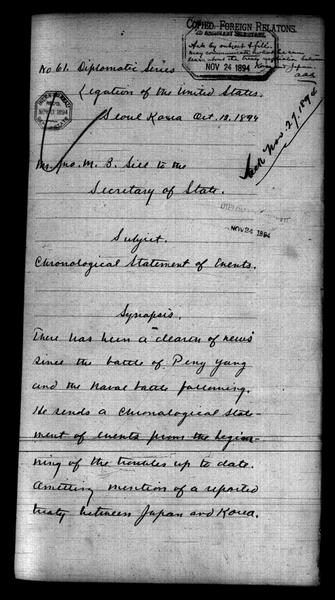 COPIED-FOREIGN RELATIONS.
NOV 24 1894
No. 61. Diplomatic Series
Legation of the United States.
Seoul Korea Oct. 12, 1894
NOV 13 1894
Ack Nov 27, 1894
Mr. Jno. M. B. Sill to the
Secretary of State.
NOV 24 1894
Subject.
Chronological Statement of Events.
Synopsis.
There has been a dearth of news
since the battle of Peng Yang
and the Naval battle following.
He sends a chronological state-
ment of events from the begin-
ning of the troubles up to date.
Omitting mention of a reported
treaty between Japan and Korea.